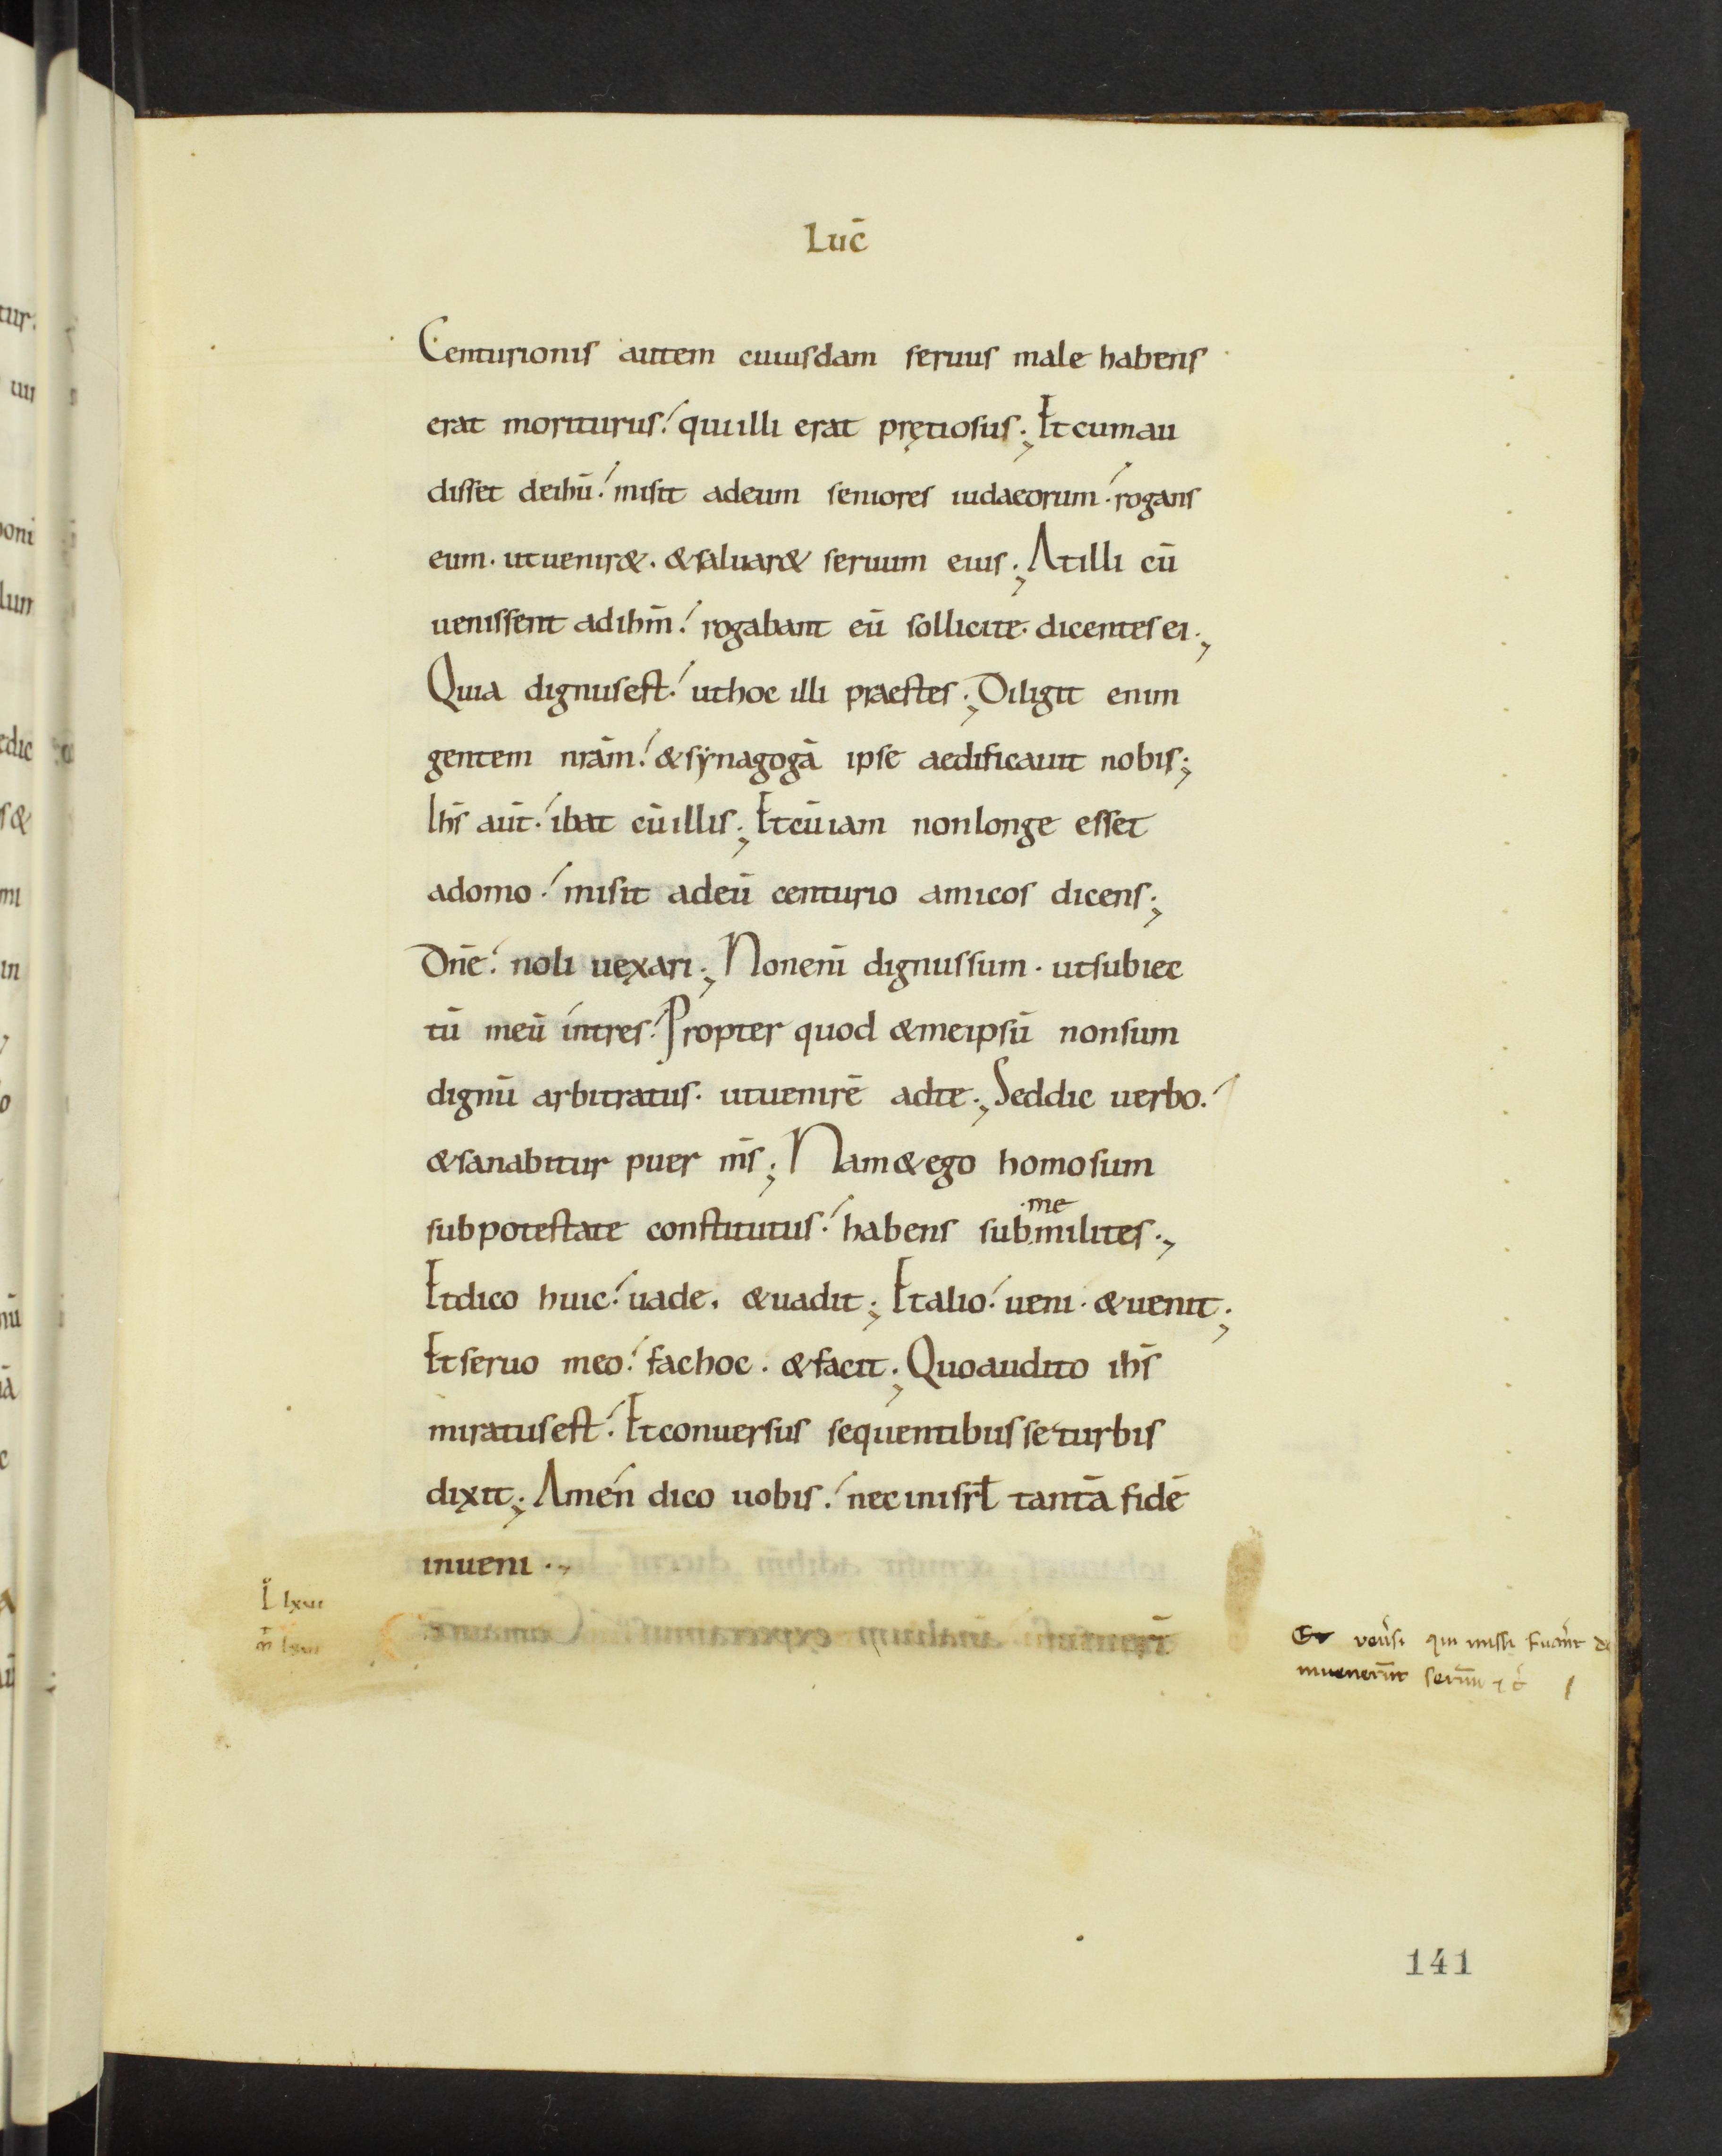 Luc̄
Centurionis autem cuiusdam seruus male habens
erat moriturus. qui illi erat prętiosus; Et cum au
disset de ihū. misit ad eum seniores iudaeorum. rogans
eum. ut uenir&. & saluar& seruum eius; At illi cū
uenissent ad ihm̄. rogabant eū sollicite. dicentes ei;
Quia dignus est. ut hoc illi praestes; Diligit enim
gentem nrām. & synagogā ipse aedificauit nobis;
Ihs̄ aut̄. ibat cū illis; Et cū iam non longe esset
a domo. misit ad eū centurio amicos dicens;
Dn̄e. noli uexari; Non enī dignus sum. ut sub tec
tū meū intres. Propter quod & me ipsū non sum
dignū arbitratus. ut uenirē ad te; Sed dic uerbo.
& sanabitur puer ms̄; Nam & ego homo sum
sub potestate constitutus. habens sub me milites;
Et dico huic. uade. & uadit; Et alio. ueni. & uenit;
Et seruo meo. fac hoc. & facit; Quo audito ihs̄
miratus est. Et conuersus sequentibus se turbis
dixit; Amen dico uobis. nec in isrł tantā fidē
inueni
L lxvi
Et reūsi qui missi fuānt do
inuenerūt seruū
141